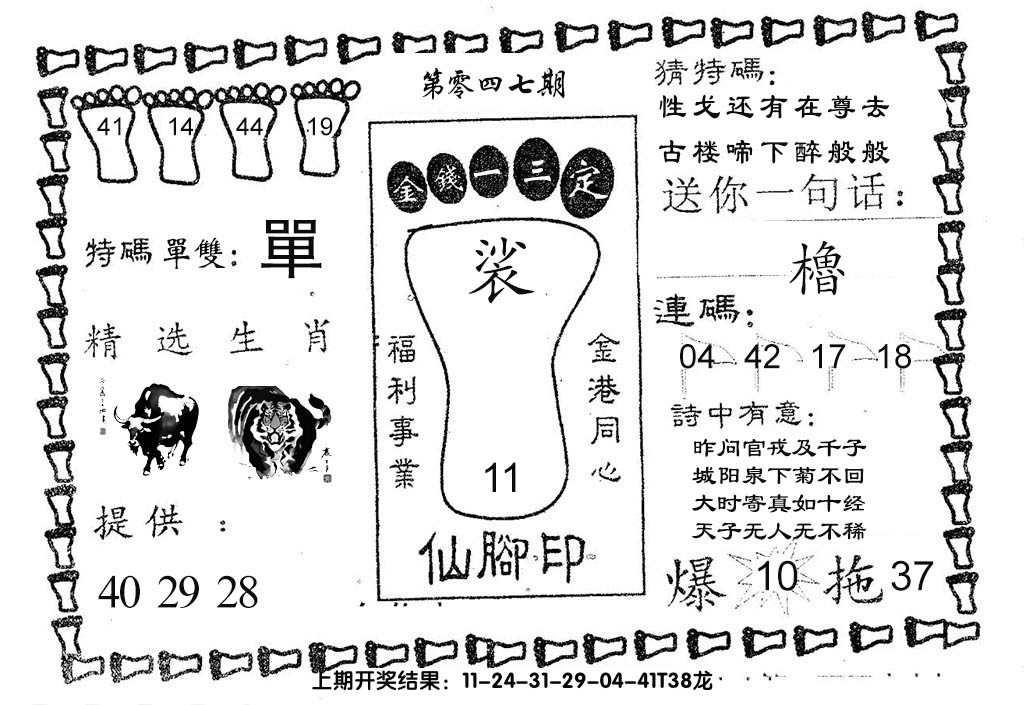 第零四七期
41 14 44 19
特碼單雙: 單
精选生肖
提供 :
40 29 28
金錢一三定
裟
福利事業
金港同心
11
仙腳印
猜特碼:
性戈还有在尊去
古楼啼下醉般般
送你一句话:
櫓
連碼:
04 42 17 18
詩中有意:
昨问官戎及千子
城阳泉下菊不回
大时寄真如十经
天子无人无不稀
爆 10 拖 37
上期开奖结果：11-24-31-29-04-41T38龙